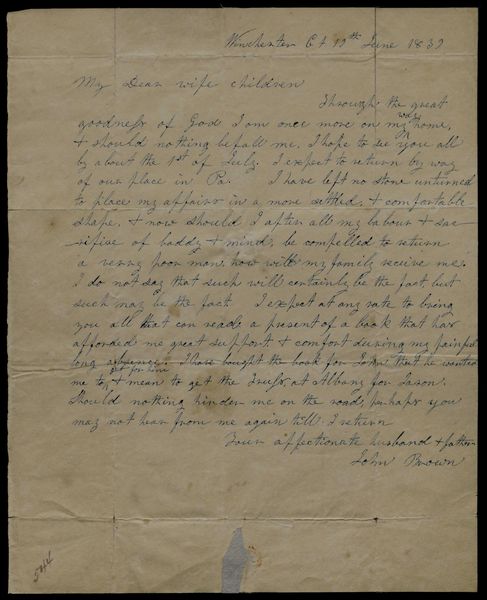 Winchester Ct 19th June 1839
My Dear wife children
Through the great
goodness of God I am once more on my way home,
& should nothing befall me, I hope to see you all
by about the 1st of July. I expect to return by way
of our place in Pa. I have left no stone unturned
to place my affairs in a more settled, & comfortable
shape, & now should I after all my labour & sac
rifise of boddy & mind, be compelled to return
a verry poor man, how will my family receive me.
I do not say that such will certainly be the fact, but
such may be the fact I expect at any rate to bring
you all that can read a present of a book that has
afforded me great support & comfort during my painful
long absence. I have bought the book for John that he wanted
me to get for him & mean to get the Truss at Albany for Jason.
Should nothing hinder me on the road, perhaps you
may not hear from me again till I return
Your affectionate husband & father
John Brown